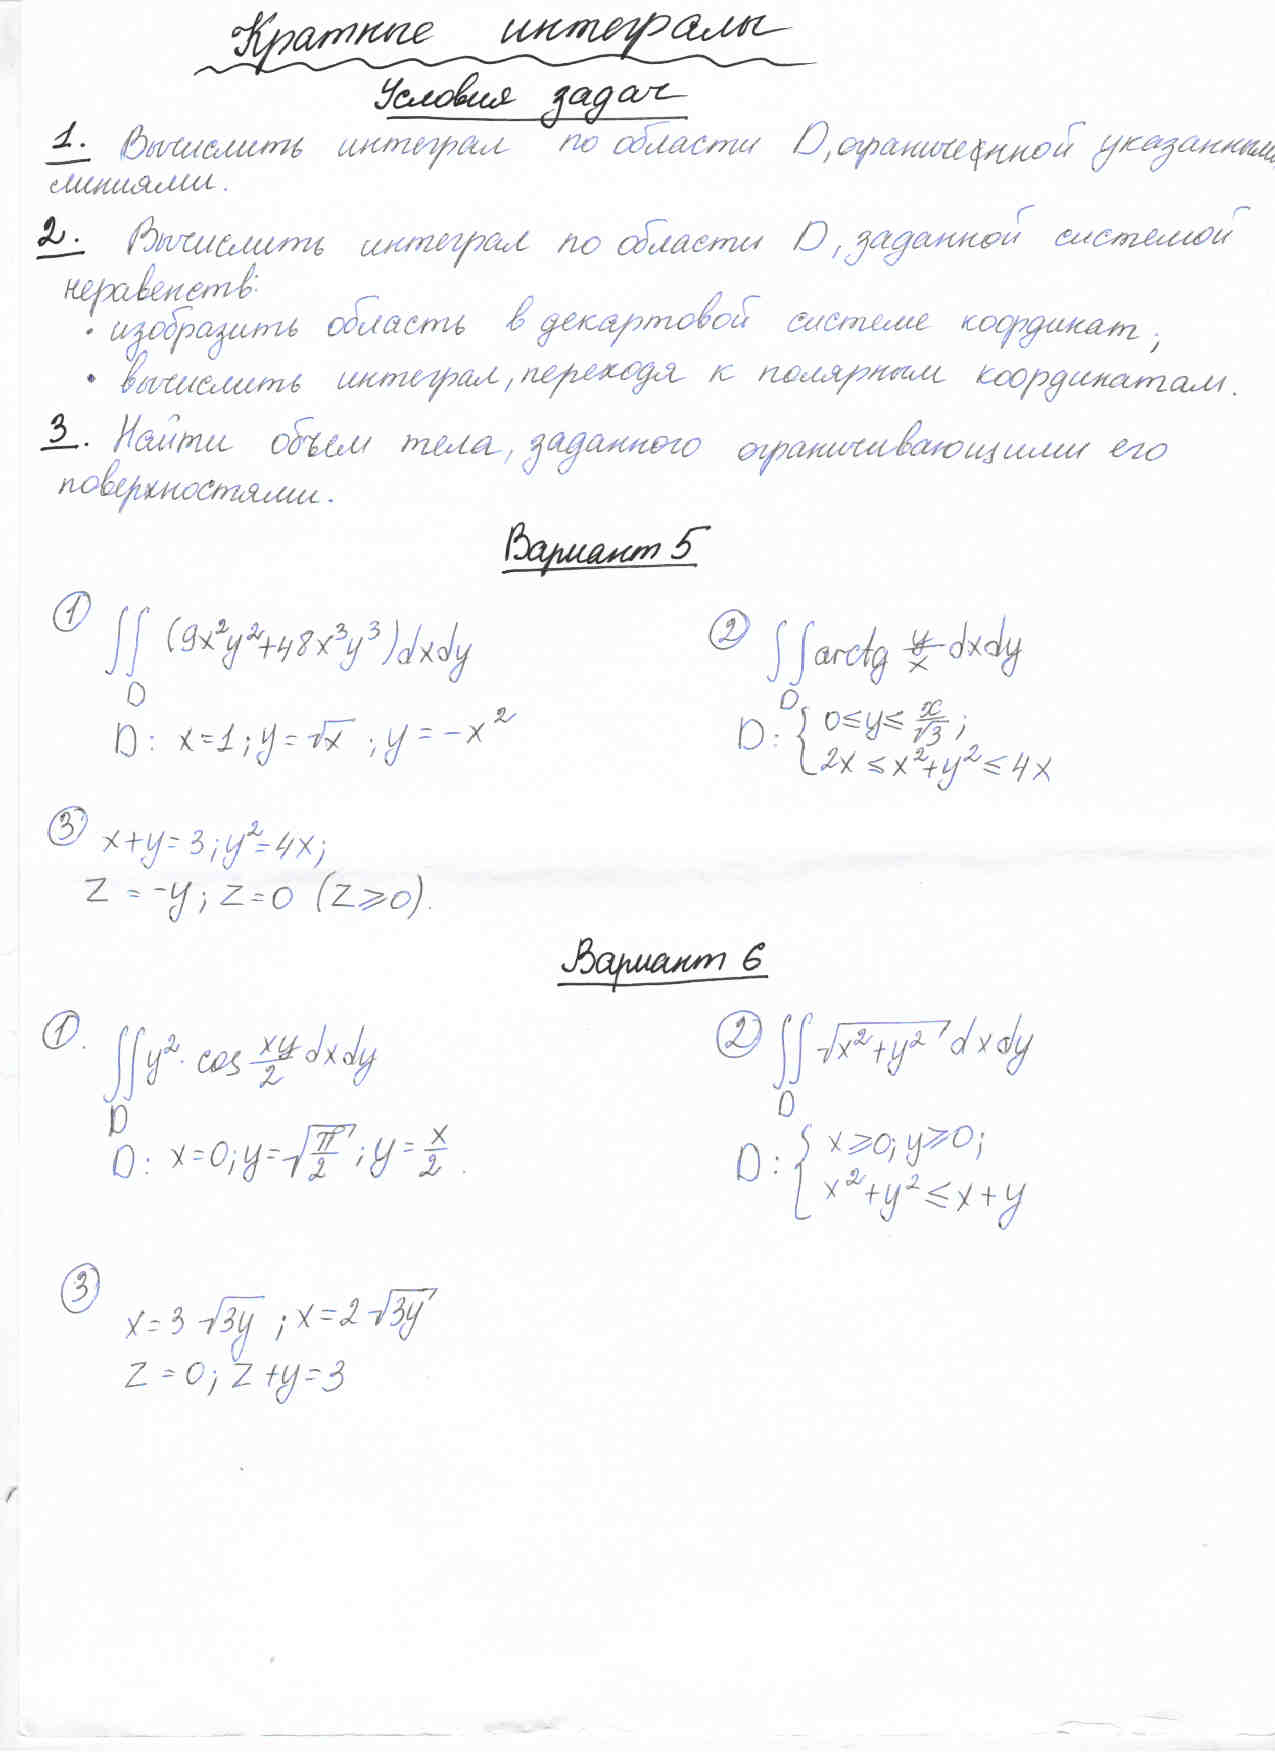 Кратные интегралы
Условия задач
1. Вычислить интеграл по области D, ограниченной указанными
линиями.
2. Вычислить интеграл по области D, заданной системой
неравенств:
• изобразить область в декартовой системе координат;
• вычислить интеграл, переходя к полярным координатам.
3. Найти объем тела, заданного ограничивающими его
поверхностями.
Вариант 5
① ∬ (9x²y²+48x³y³)dxdy
D
D: x=1; y=√x ; y=-x²
② ∬ arctg y/x dxdy
D
D: { 0≤y≤ x/√3 ;
2x ≤ x²+y² ≤ 4x
③ x+y=3; y²=4x;
z=-y; z=0 (z≥0).
Вариант 6
①. ∬ y²· cos xy/2 dxdy
D
D: x=0; y=√(π/2) ; y= x/2 .
② ∬ √(x²+y²) dxdy
D
D: { x≥0; y≥0;
x²+y² ≤ x+y
③
x=3√3y ; x=2√3y
z=0; z+y=3